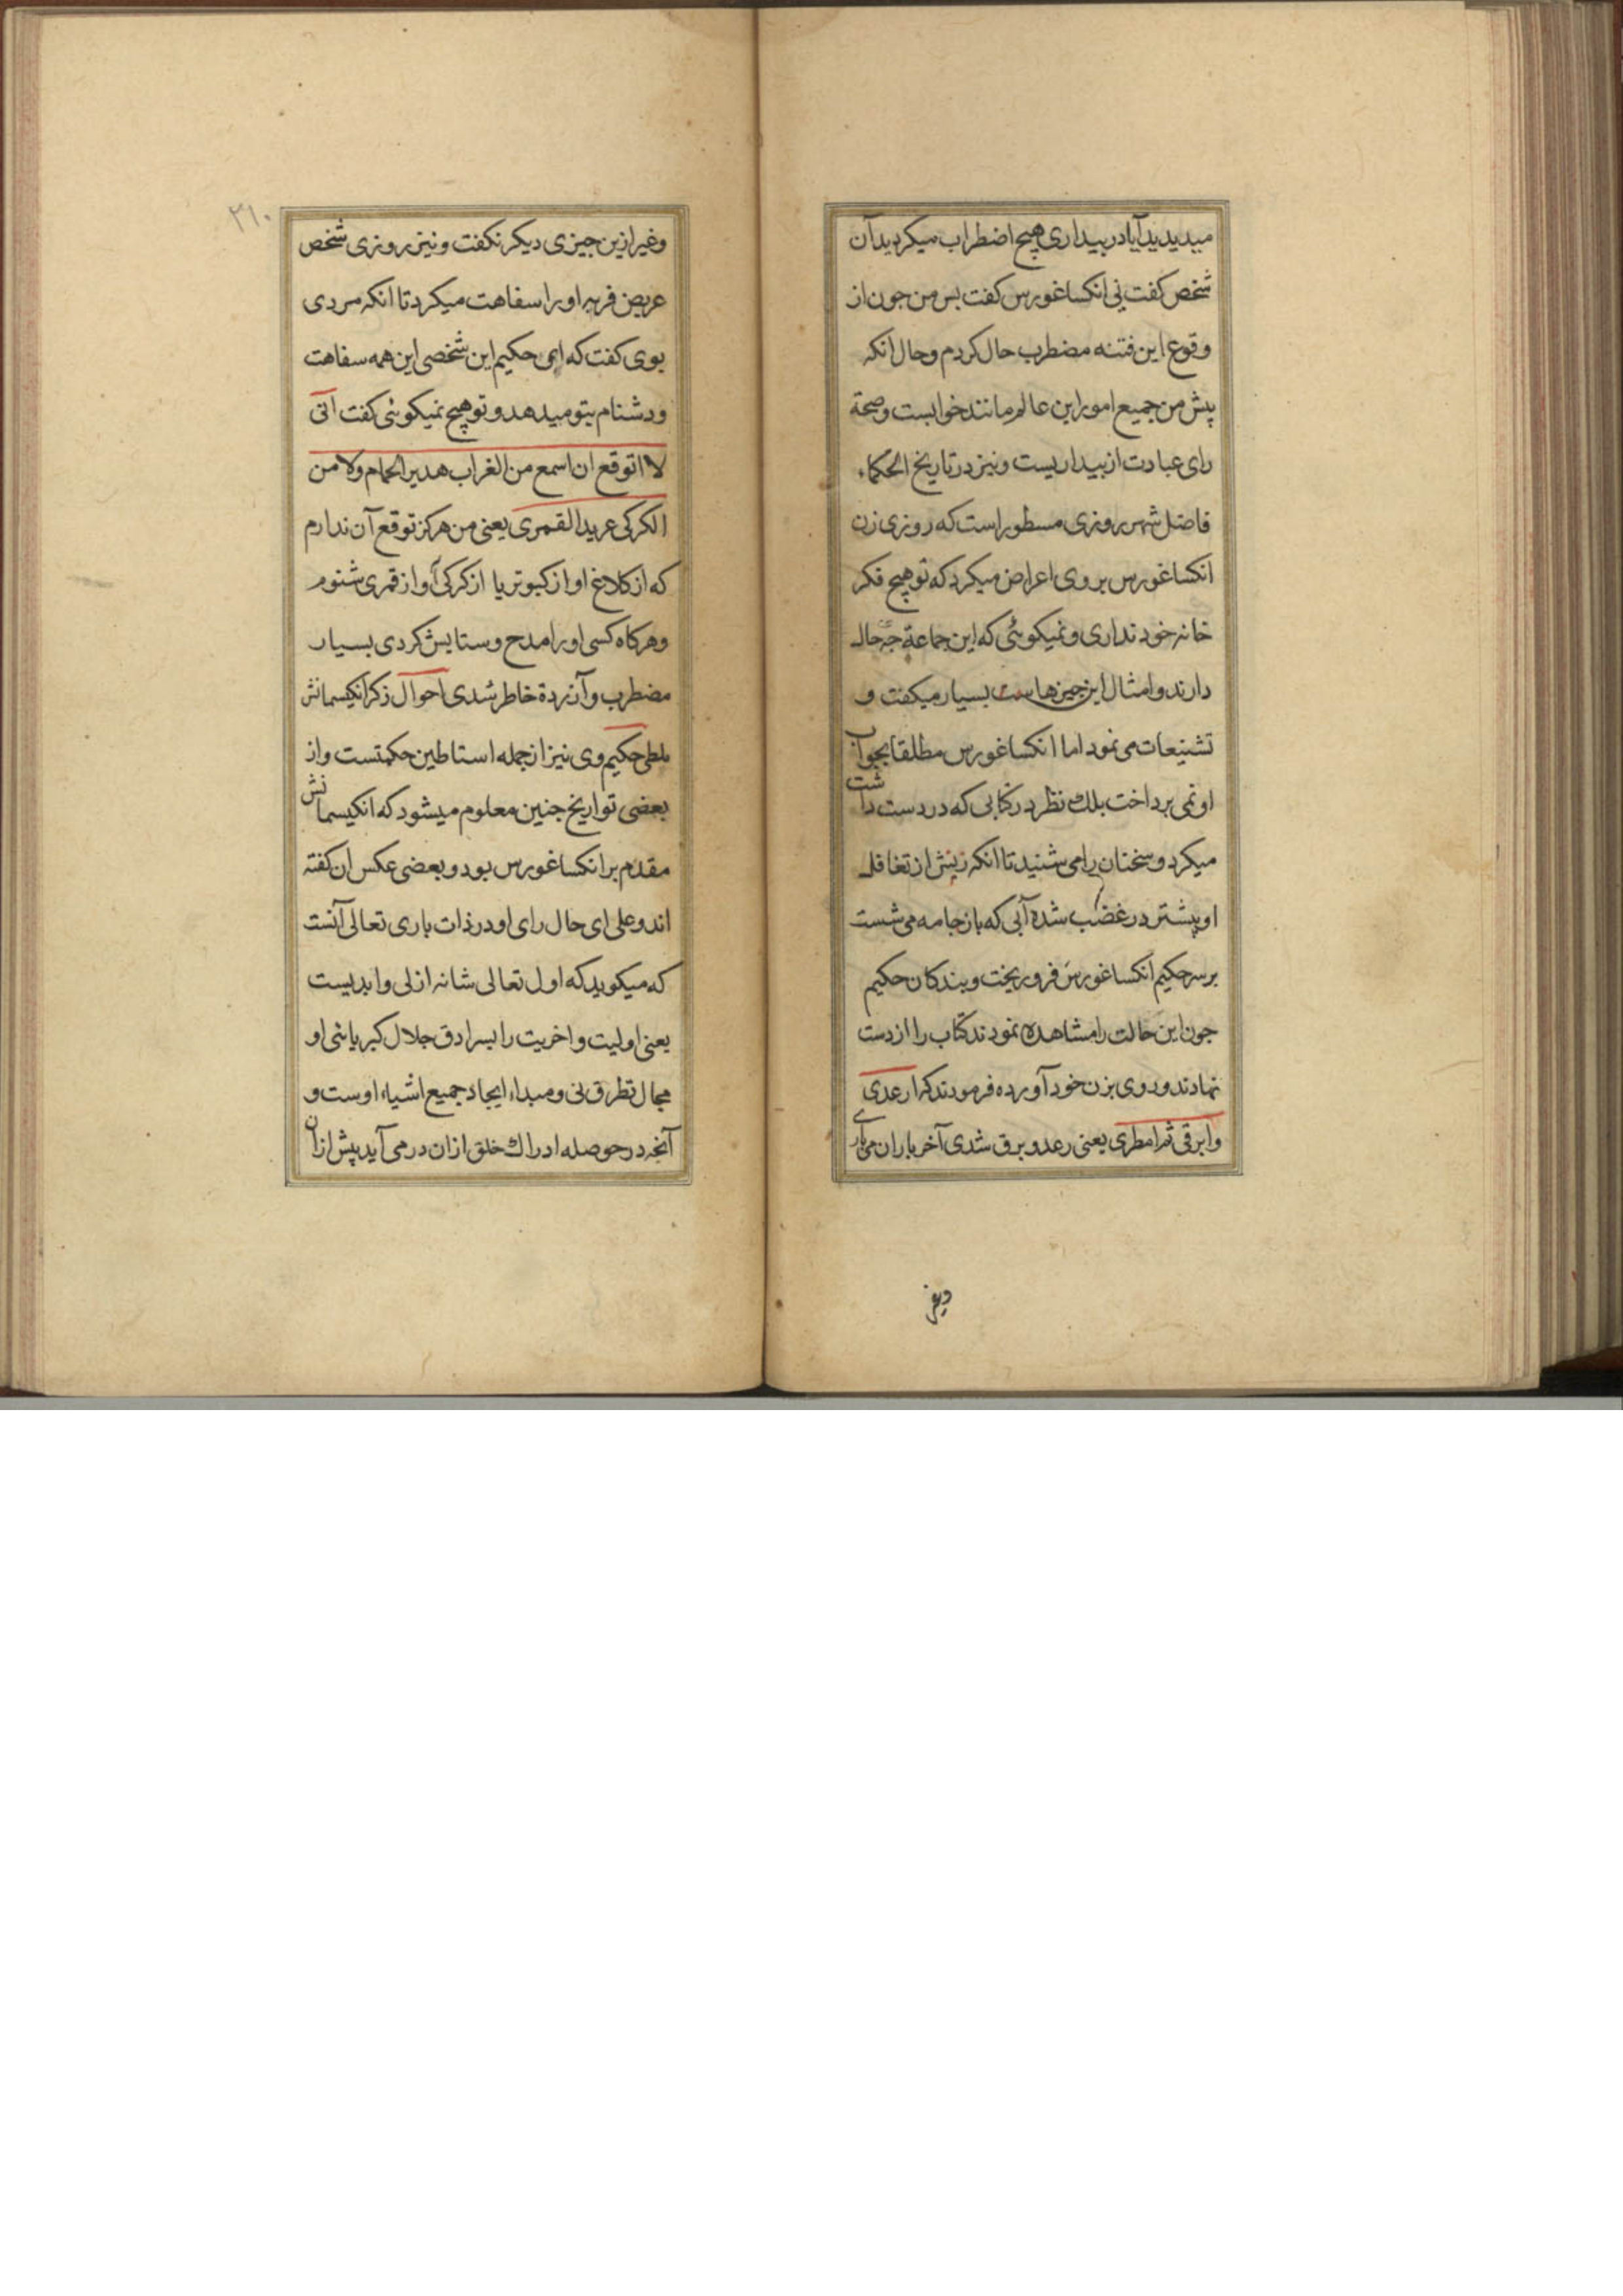 میدیدید آیا در بیداری هیچ اضطراب میکردید آن
شخص کفت نی انکساغورس کفت بس من جون از
وقوع این فتنه مضطرب حال کردم و حال انکه
پیش من جمیع امور این عالم مانند خوابست و صحة
رای عبادت از بیداریست و نیز در تاریخ الحکماء
فاضل شهرروزی مسطور است که روزی زن
انکساغورس بر وی اعراض میکرد که تو هیچ فکر
خانه خود نداری و نمیکوئی که این جماعة جه حال
دارند و امثال این جیزها ست بسیار میکفت و
تشنیعات می نمود اما انکساغورس مطلقا بجواب
او نمی برداخت بلك نظر در کتابی که در دست داشت
میکرد و سخنان را می شنید تا انکه زنش از تغافل
او پیشتر در غضب شده آبی که باز جامه می شست
بر سر حکیم انکساغورس فرو ریخت و بندکان حکیم
جون این حالت را مشاهده نمودند کتاب را از دست
نهادند و روی بزن خود آورده فرمودند که ارعدی
وابرقی ثم امطری یعنی رعد و برق شدی آخر باران می باری
وغیر
٣١٠
وغیر ازین جیزی دیکر نکفت و نیز روزی شخص
عریض فربه او را سفاهت میکرد تا انکه مردی
بوی کفت که ای حکیم این شخصی این همه سفاهت
ودشنام بتو میدهد و تو هیچ نمیکوئی کفت انی
لا اتوقع ان اسمع من الغراب هدیر الحمام ولا من
الکرکی عرید القمری یعنی من هرکز توقع آن ندارم
که از کلاغ اواز کبوتر یا از کرکی آواز قمری شنوم
و هر کاه کسی او را مدح و ستایش کردی بسیار
مضطرب و آزردة خاطر شدی احوال ذکر انکیسمانش
ملطی حکیم وی نیز از جمله استاطین حکمتست و از
بعضی تواریخ جنین معلوم میشود که انکیسمانش
مقدم بر انکساغورس بود و بعضی عکس ان کفته
اند و علی ای حال رای او در ذات باری تعالی آنست
که میکوید که اول تعالی شانه ازلی و ابدیست
یعنی اولیت و اخریت را بسرادق جلال کبریائی او
مجال تطرق نی و مبداء ایجاد جمیع اشیاء اوست و
آنجه در حوصله ادراك خلق ازان در می آید پیش ازان